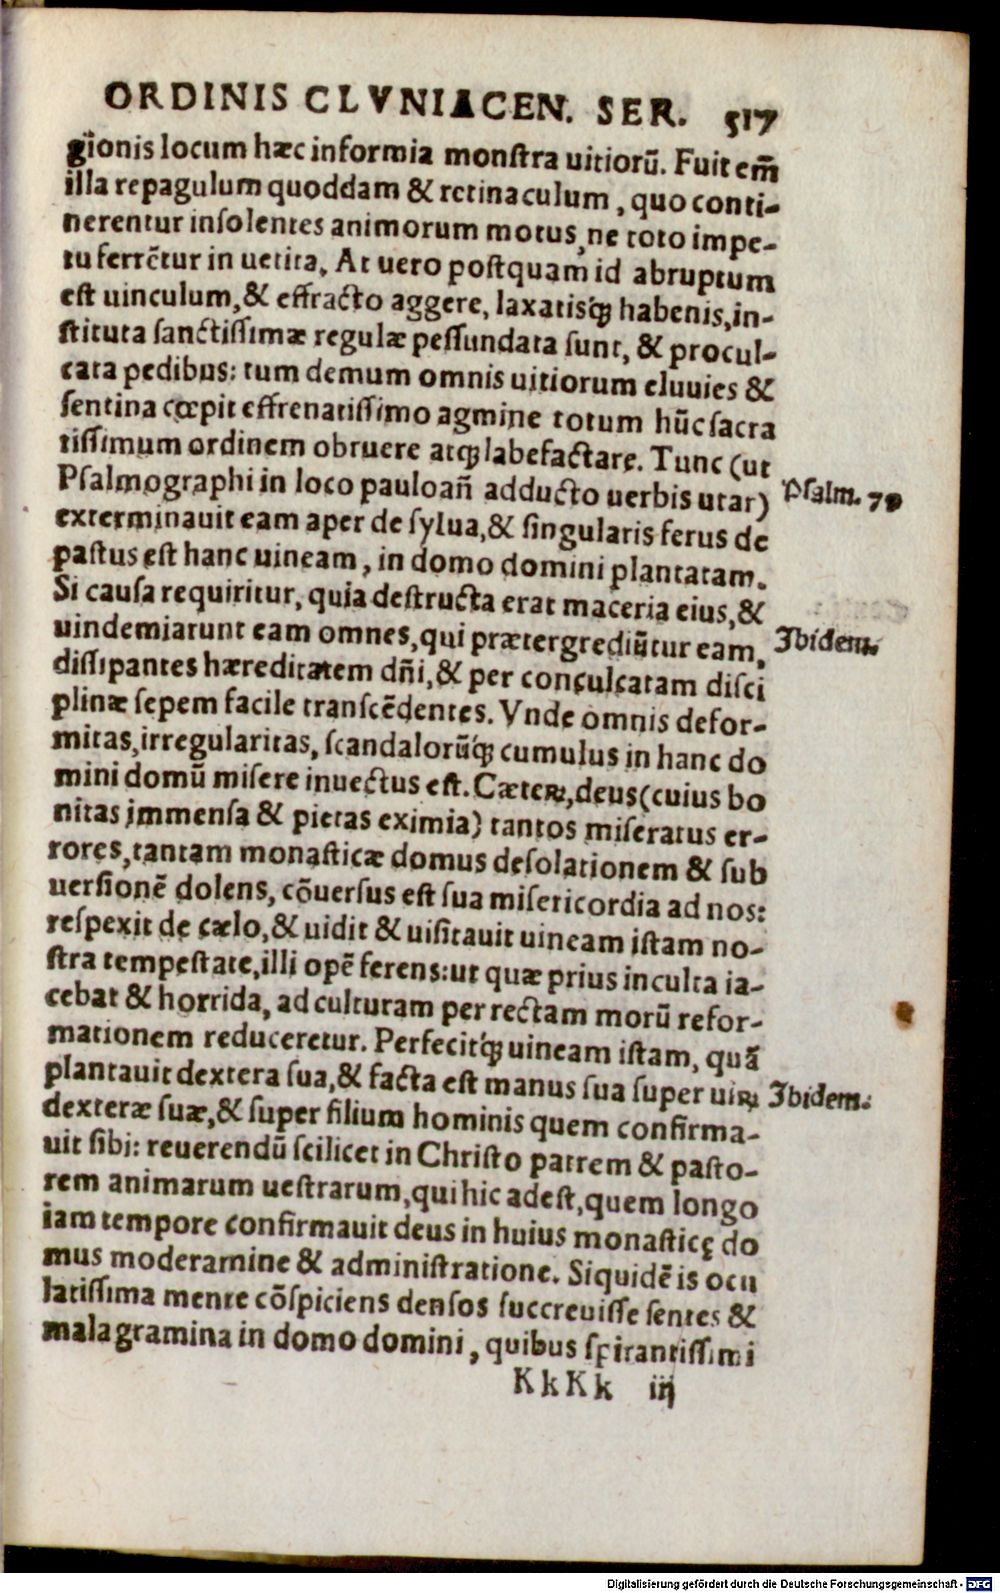 ORDINIS CLVNIACEN. SER. 517
gionis locum hæc informia monſtra uitiorũ. Fuit em̃
illa repagulum quoddam & retinaculum, quo conti-
nerentur inſolentes animorum motus, ne toto impe-
tu ferrẽtur in uetita. At uero poſtquam id abruptum
eſt uinculum, & effracto aggere, laxatisq́; habenis, in-
ſtituta ſanctiſſimæ regulæ peſſundata ſunt, & procul-
cata pedibus: tum demum omnis uitiorum eluuies &
ſentina cœpit effrenatiſſimo agmine totum hũc ſacra
tiſſimum ordinem obruere atq; labefactare. Tunc (ut
Pſalmographi in loco pauloañ adducto uerbis utar)
Pſalm. 79
exterminauit eam aper de ſylua, & ſingularis ferus de
paſtus eſt hanc uineam, in domo domini plantatam.
Si cauſa requiritur, quia deſtructa erat maceria eius, &
uindemiarunt eam omnes, qui prætergrediũtur eam,
Ibidem.
diſſipantes hæreditatem dñi, & per conculcatam diſci
plinæ ſepem facile tranſcẽdentes. Vnde omnis defor-
mitas, irregularitas, ſcandalorũq́; cumulus in hanc do
mini domũ miſere inuectus eſt. Cæteꝝ, deus (cuius bo
nitas immenſa & pietas eximia) tantos miſeratus er-
rores, tantam monaſticæ domus deſolationem & ſub
uerſionẽ dolens, cõuerſus eſt ſua miſericordia ad nos:
reſpexit de cælo, & uidit & uiſitauit uineam iſtam no-
ſtra tempeſtate, illi opẽ ferens: ut quæ prius inculta ia-
cebat & horrida, ad culturam per rectam morũ refor-
mationem reduceretur. Perfecitq́; uineam iſtam, quã
plantauit dextera ſua, & facta eſt manus ſua ſuper uiꝝ
Ibidem.
dexteræ ſuæ, & ſuper filium hominis quem confirma-
uit ſibi: reuerendũ ſcilicet in Chriſto patrem & paſto-
rem animarum ueſtrarum, qui hic adeſt, quem longo
iam tempore confirmauit deus in huius monaſticę do
mus moderamine & adminiſtratione. Siquidẽ is ocu
latiſſima mente cõſpiciens denſos ſuccreuiſſe ſentes &
mala gramina in domo domini, quibus ſpirantiſſimi
KkKk iij
Digitalisierung gefördert durch die Deutsche Forschungsgemeinschaft - DFG